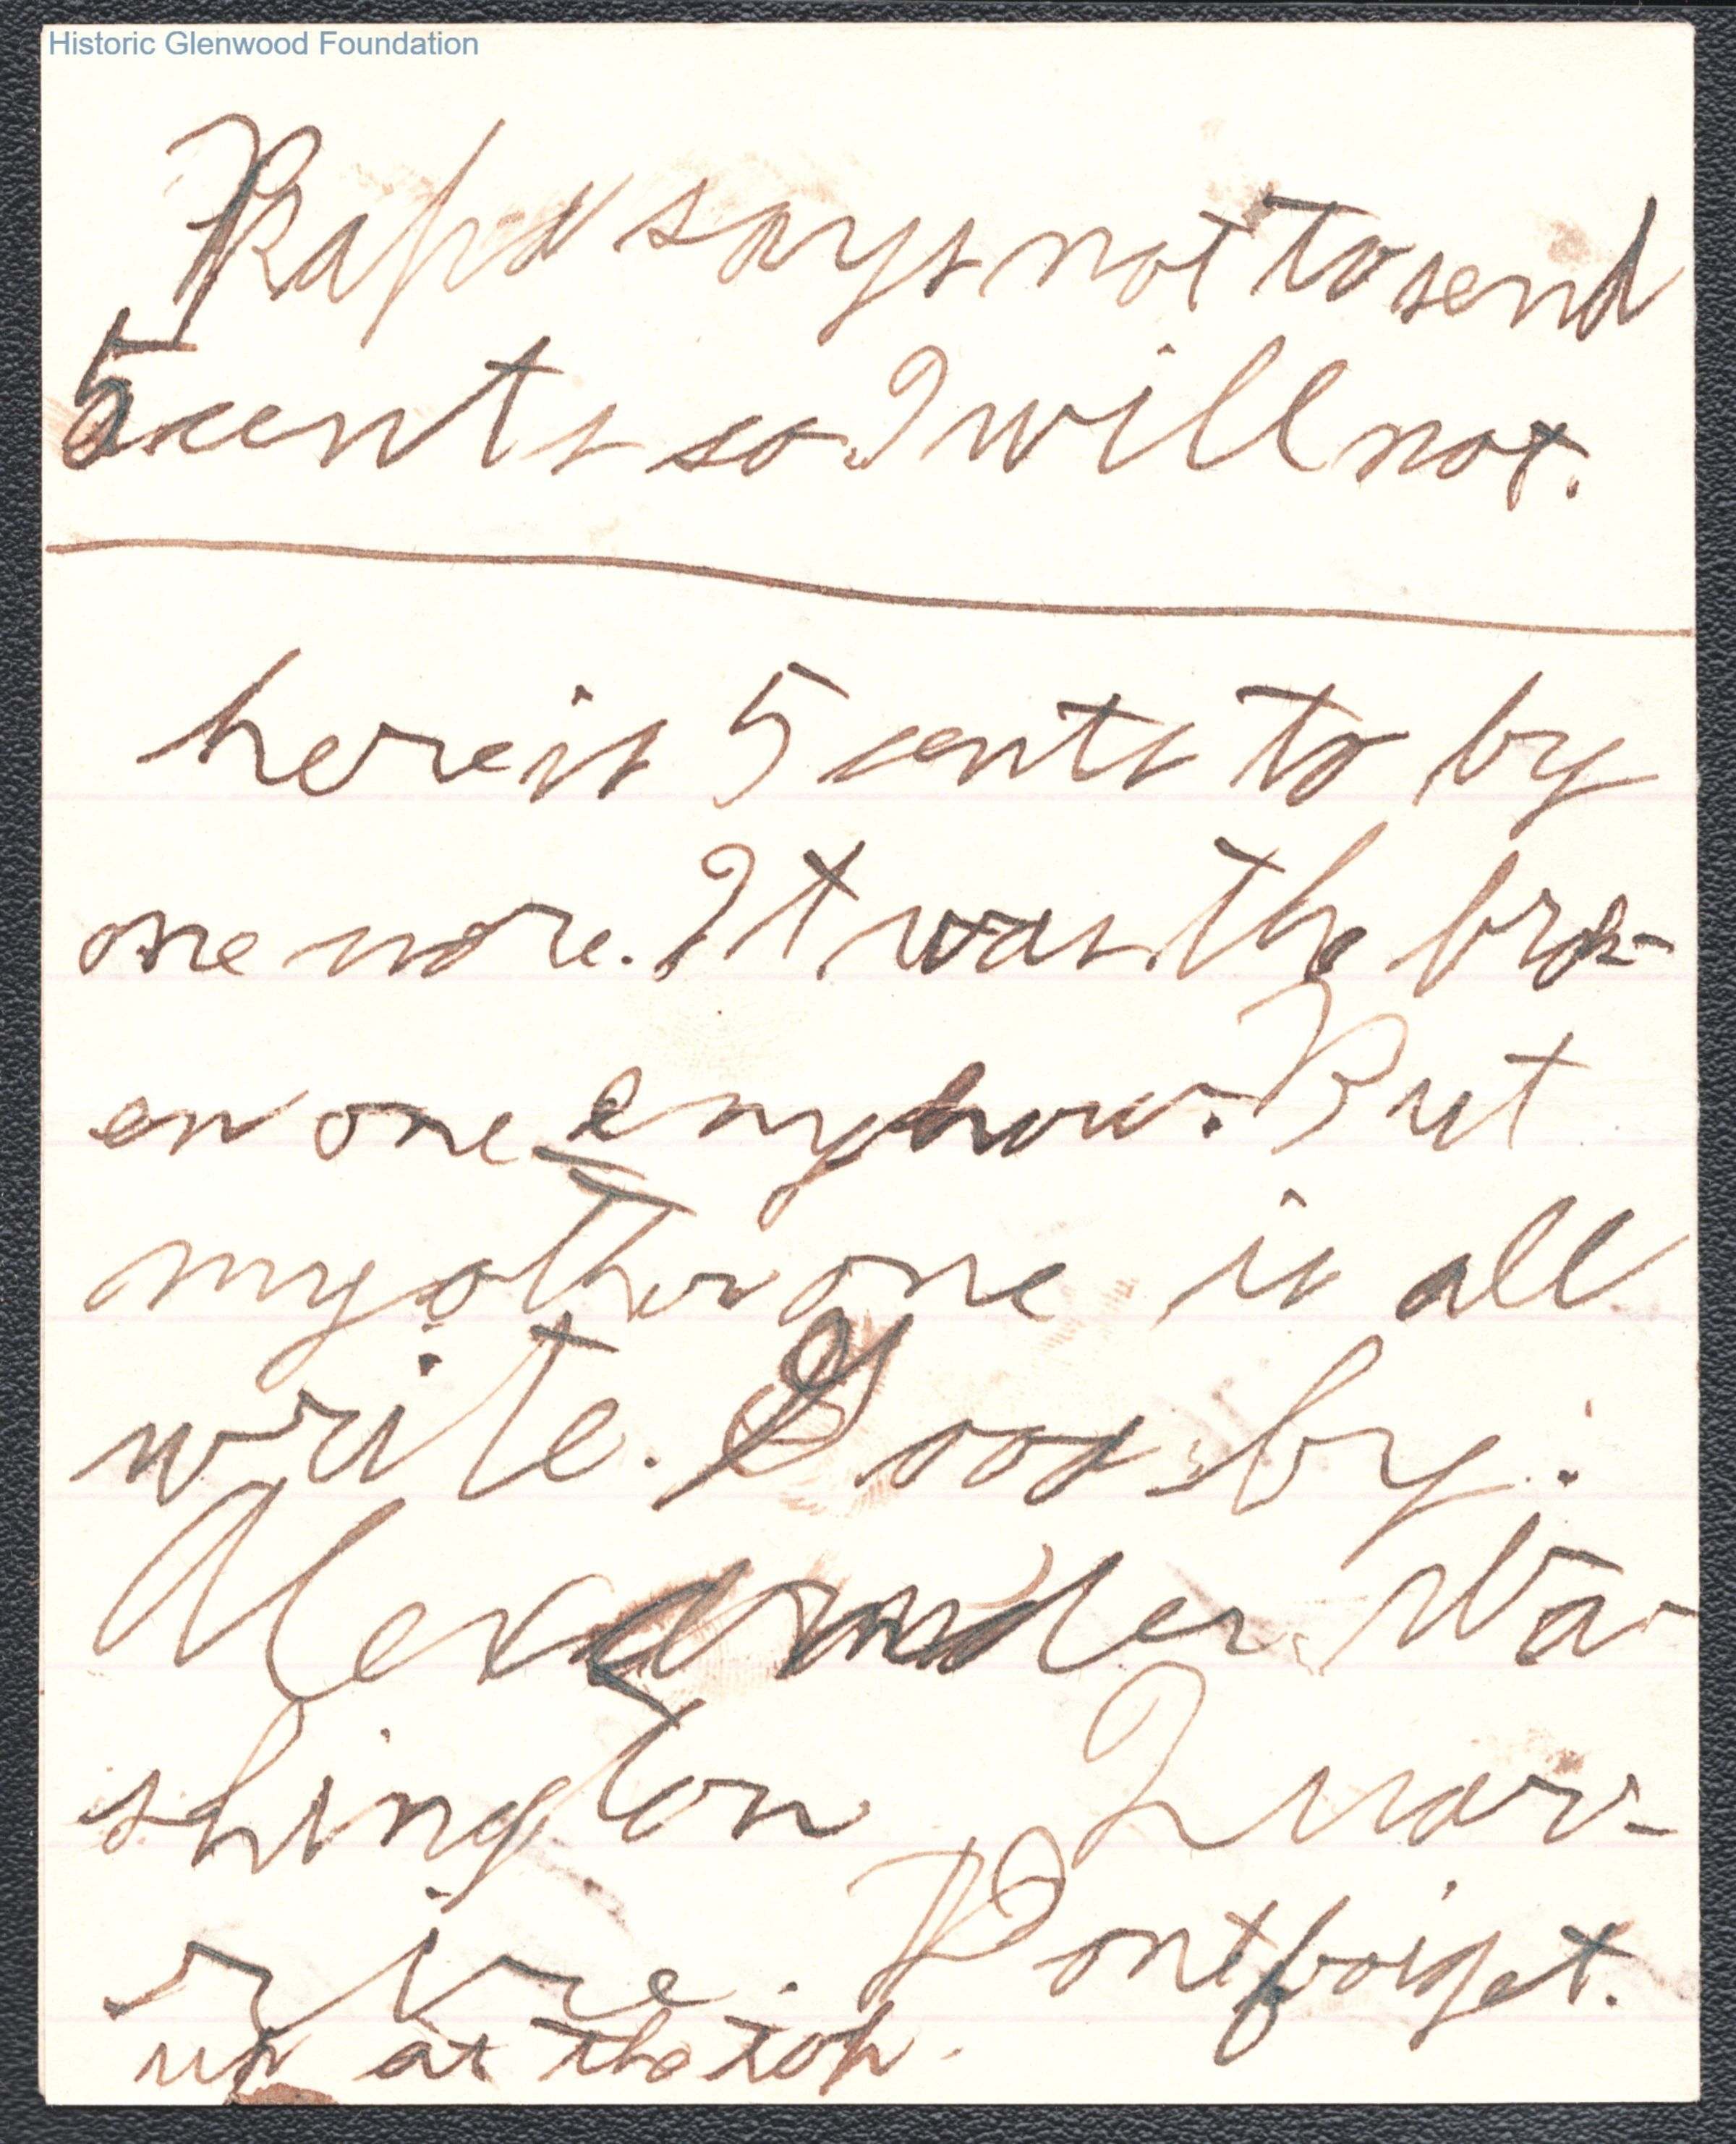 Historic Glenwood Foundation
Papa says not to send
5 cents so I will not.
here is 5 cents to by
one more. It was the brok-
en one enyhow. But
my other one is all
write. Good by.
Alexander Wa-
shington
rire. Dontforget.
up at the top.